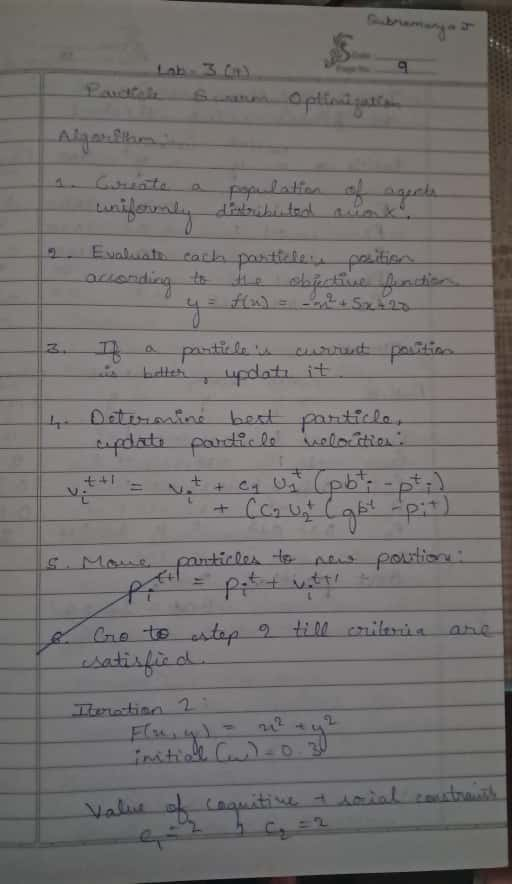 Subramanya J
9
Lab - 3 (9)
Particle Swarm Optimization
Algorithm:
1. Create a population of agents
uniformly distributed over X.
2. Evaluate each particle's position
according to the objective function
y = f(x) = -x² + 5x + 20
3. If a particle's current position
is better, update it.
4. Determine best particle,
update particle velocities:
vᵢᵗ⁺¹ = vᵢᵗ + c₁ U₁ᵗ (pbᵗᵢ - pᵗᵢ)
+ (c₂ U₂ᵗ (gbᵗ - pᵢᵗ)
5. Move particles to new position:
pᵢᵗ⁺¹ = pᵢᵗ + vᵢᵗ⁺¹
6. Go to step 2 till criteria are
satisfied.
Iteration 2:
F(x, y) = x² + y²
initial (w) = 0.3
Value of cognitive + social constraints
c₁ = 2 , c₂ = 2